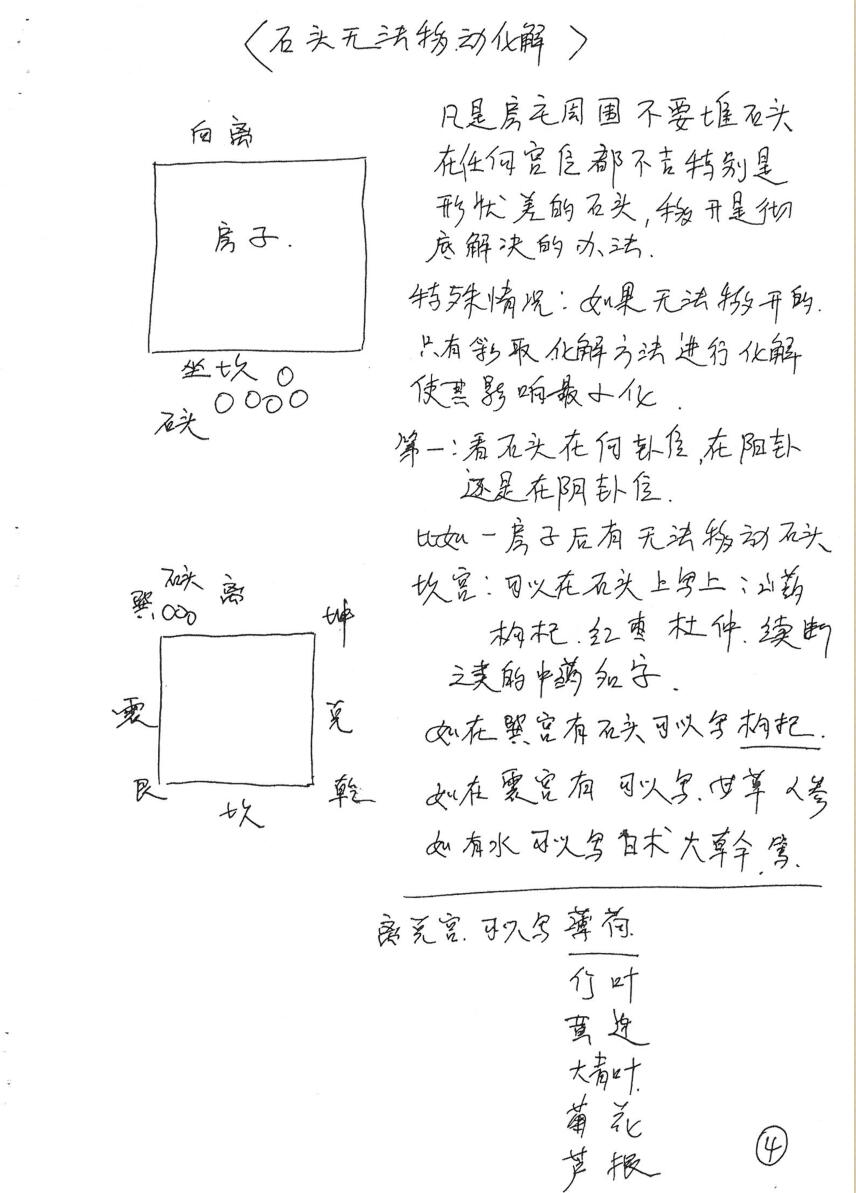 〈石头无法移动化解〉
向离
房子.
坐坎
石头
凡是房宅周围不要堆石头
在任何宫位都不吉特别是
形状差的石头,移开是彻
底解决的办法.
特殊情况:如果无法移开的.
只有采取化解方法进行化解
使其影响最小化.
第一:看石头在何卦位,在阳卦
还是在阴卦位.
比如一房子后有无法移动石头
坎宫:可以在石头上写上:山药
枸杞.红枣 杜仲.续断
之类的中药名字.
如在巽宫有石头可以写枸杞.
如在震宫有可以写.甘草 人参
如有水可以写白术 大
石头
巽 离 坤
震 兑
艮 乾
坎
离兑宫.可以写薄荷.
竹叶
黄连
大青叶.
菊花
芦根
④